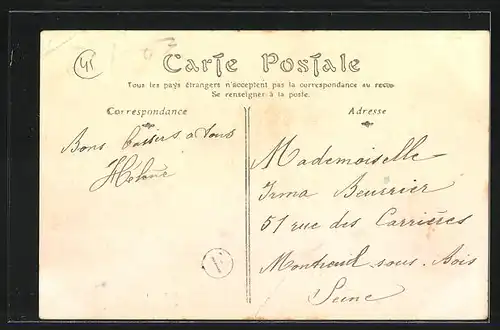 45
Carte Postale
Tous les pays étrangers n'acceptent pas la correspondance au recto
Se renseigner à la poste.
Correspondance
Adresse
Bons baisers a tous
Hélène
Mademoiselle
Irma Beurrier
51 rue des Carrières
Montreuil sous. Bois
Seine